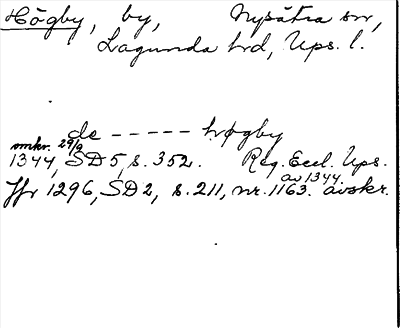 Högby, by, Nysätra sn,
Lagunda hd, Ups. l.
de ----- høgby
omkr. 29/9
1344, SD 5, s. 352. Reg. Eccl. Ups.
av 1344.
Jfr 1296, SD 2, s. 211, nr. 1163. avskr.